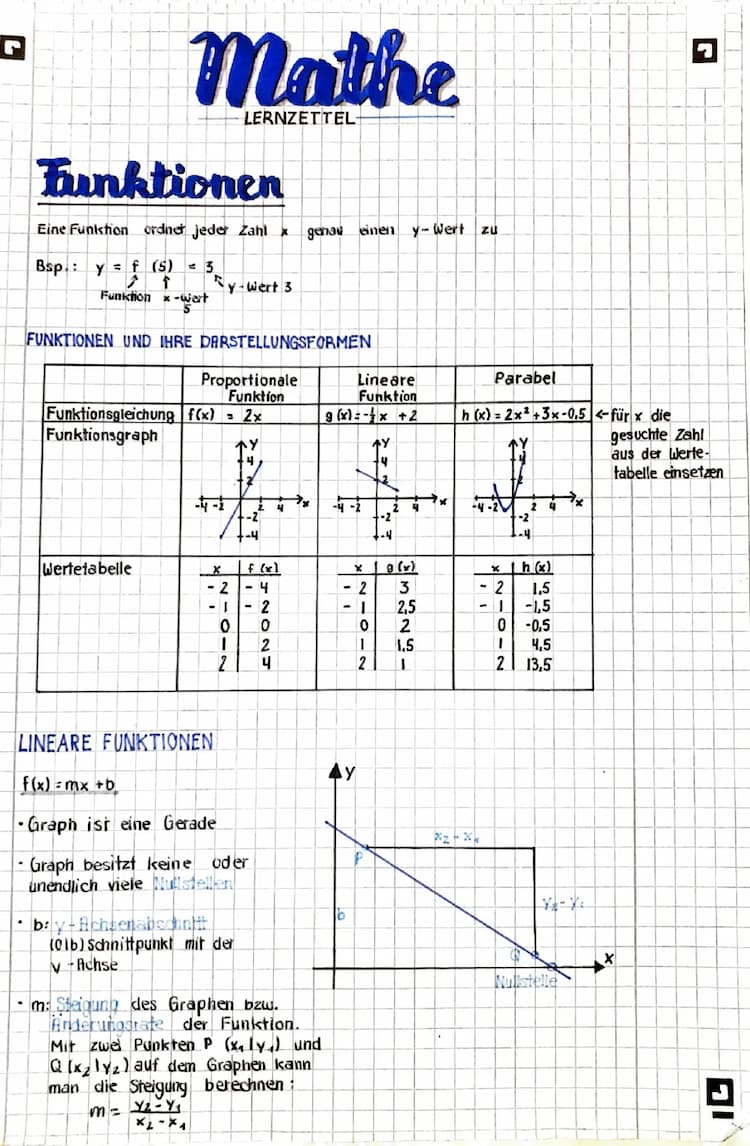 Mathe
LERNZETTEL
Funktionen
Eine Funktion ordnet jeder Zahl x genau einen y-Wert zu
Bsp.: y = f (5) = 3
Funktion x-Wert y-Wert 3
5
FUNKTIONEN UND IHRE DARSTELLUNGSFORMEN
Proportionale Funktion Lineare Funktion Parabel
Funktionsgleichung f(x) = 2x g(x)=-½x +2 h(x) = 2x²+3x-0,5 ←für x die
gesuchte Zahl
aus der Werte-
tabelle einsetzen
Funktionsgraph
y y y
4 4 4
2 2
-4 -2 2 4 x -4 -2 2 4 x -4 -2 2 4 x
-2 -2 -2
-4 -4 -4
Wertetabelle x f(x) x g(x) x h(x)
-2 -4 -2 3 -2 1,5
-1 -2 -1 2,5 -1 -1,5
0 0 0 2 0 -0,5
1 2 1 1,5 1 4,5
2 4 2 1 2 13,5
LINEARE FUNKTIONEN
f(x)=mx+b
• Graph ist eine Gerade
• Graph besitzt keine oder
unendlich viele Nullstellen
• b: y-Achsenabschnitt
(0|b) Schnittpunkt mit der
y-Achse
• m: Steigung des Graphen bzw.
Änderungsrate der Funktion.
Mit zwei Punkten P (x₁|y₁) und
Q(x₂|y₂) auf dem Graphen kann
man die Steigung berechnen:
m = y₂-y₁
x₂-x₁
y
x₂-x₁
P
b
y₂-y₁
Q
x
Nullstelle